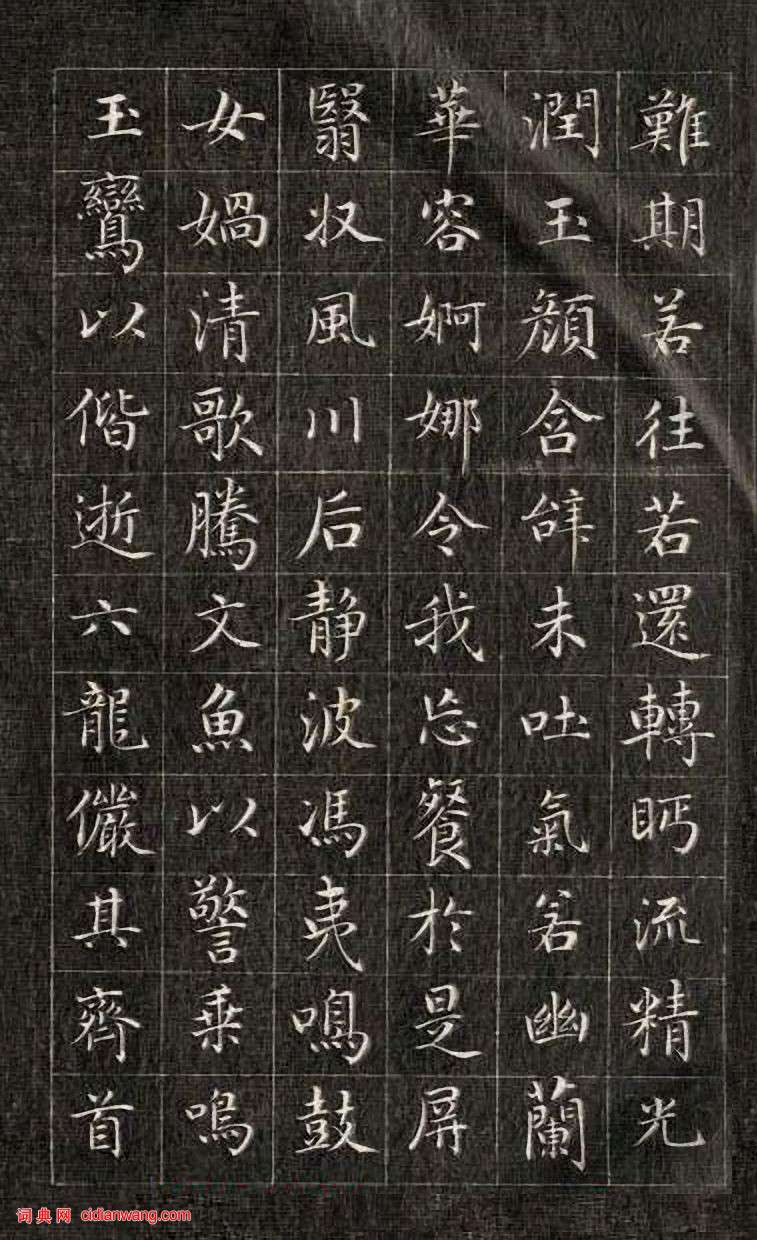 難期若往若還轉眄流精光
潤玉顔含辝未吐氣若幽蘭
華容婀娜令我忘餐於是屏
翳収風川后静波馮夷鳴鼓
女媧清歌騰文魚以警乗鳴
玉鸞以偕逝六龍儼其齊首
词典网 cidianwang.com